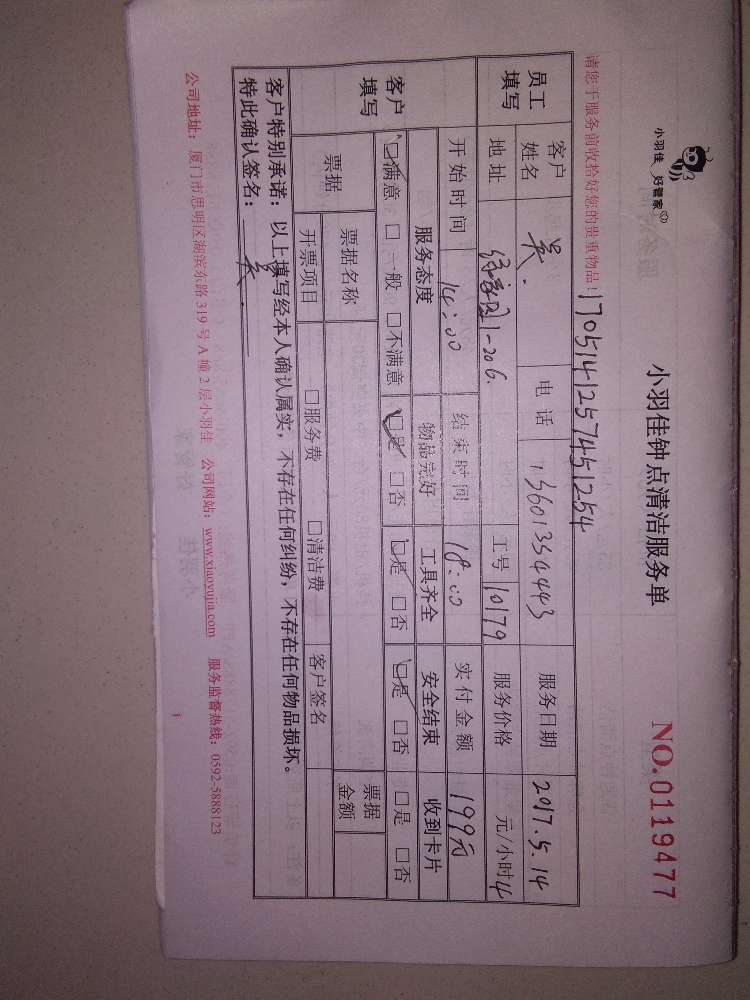 小羽佳 好管家
小羽佳钟点清洁服务单
NO.0119477
请您于服务前收拾好您的贵重物品!
1705141257451254
员工填写 客户姓名 吴. 电话 服务日期 2017.5.14
地址 1-206. 工号 10179 服务价格 元/小时 4
客户填写 开始时间 14:00 结束时间 18:00 实付金额 199元
服务态度 物品完好 工具齐全 安全结束 收到卡片
□满意 □一般 □不满意 □是 □否 □是 □否 □是 □否 □是 □否
票据 票据名称 票据金额
开票项目 □服务费 □清洁费 客户签名
客户特别承诺:以上填写经本人确认属实,不存在任何纠纷,不存在任何物品损坏。
特此确认签名: 吴.
公司地址:厦门市思明区湖滨东路 319 号 A 幢 2 层小羽佳 公司网站:www.xiaoyujia.com 服务监督热线:0592-5888123